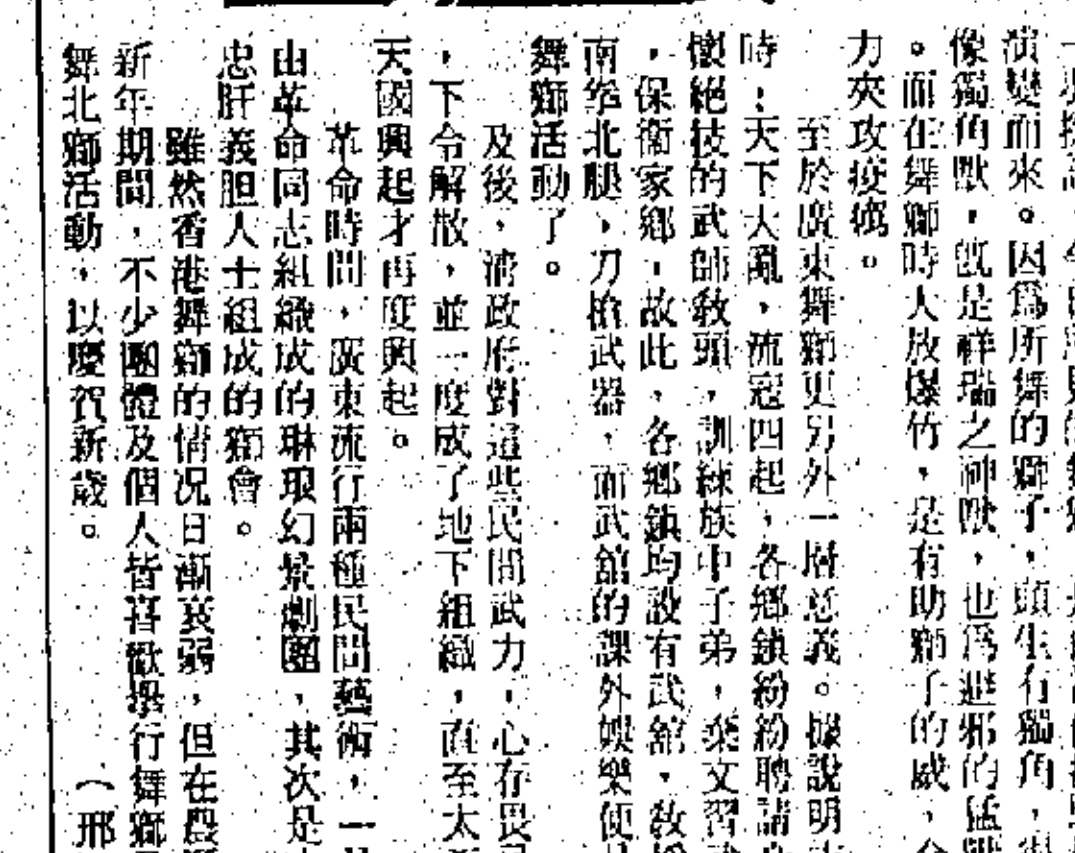 演變而來。因爲所舞的獅子，頭生有獨角，
像獨角獸，旣是祥瑞之神獸，也爲避邪的猛
。而在舞獅時人放爆竹，是有助獅子的威，
力夾攻疫癘。
至於廣東舞獅更另外一層意義。據說明
時！天下大亂，流寇四起，各鄉鎮紛紛聘請
懷絕技的武師敎頭，訓練族中子弟，棄文習
，保衛家鄉，故此，各鄉鎮均設有武舘，敎
南拳北腿，刀槍武器，而武舘的課外娛樂便
舞獅活動了。
及後，淸政府對這些民間武力，心存畏
，下令解散，並一度成了地下組織，直至太
天國興起才再度興起。
革命時間，廣東流行兩種民間藝術，一
由革命同志組織成的琳瑯幻景劇團，其次是
忠肝義胆人士組成的獅會。
雖然香港舞獅的情况日漸衰弱，但在農
新年期間，不少團體及個人皆喜歡擧行舞獅
舞北獅活動，以慶賀新歲。（邢